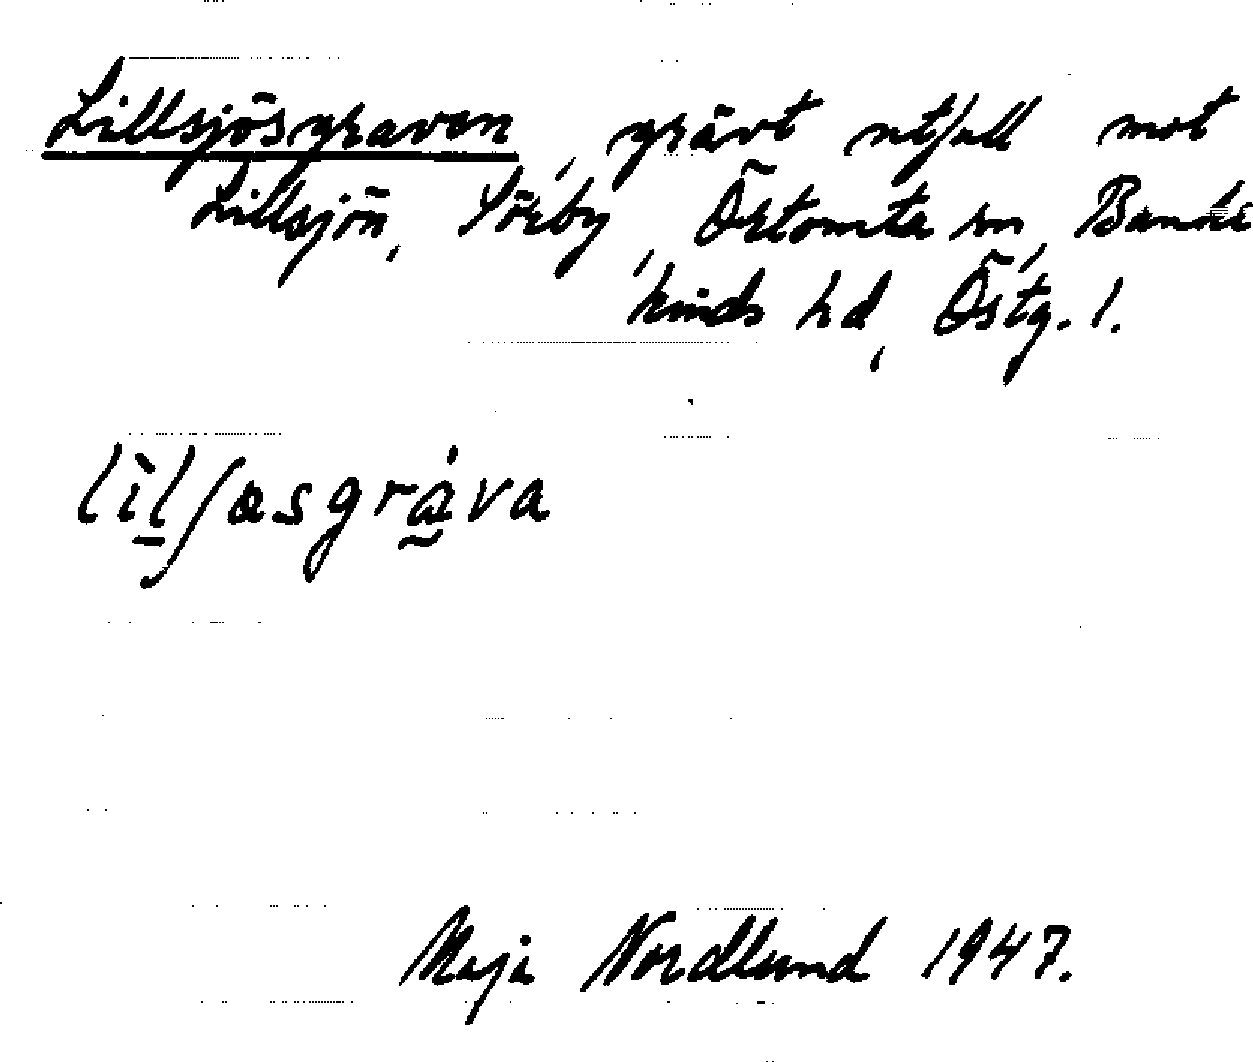 Lillsjösgraven, grävt utfall mot
Lillsjön, Sörby, Örtomta sn, Bande
kinds hd, Östg. l.
lìlʃøsgrȧva
Maja Nordlund 1947.